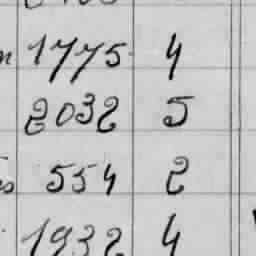 n 1775 4
2032 5
es 554 2
1932 4